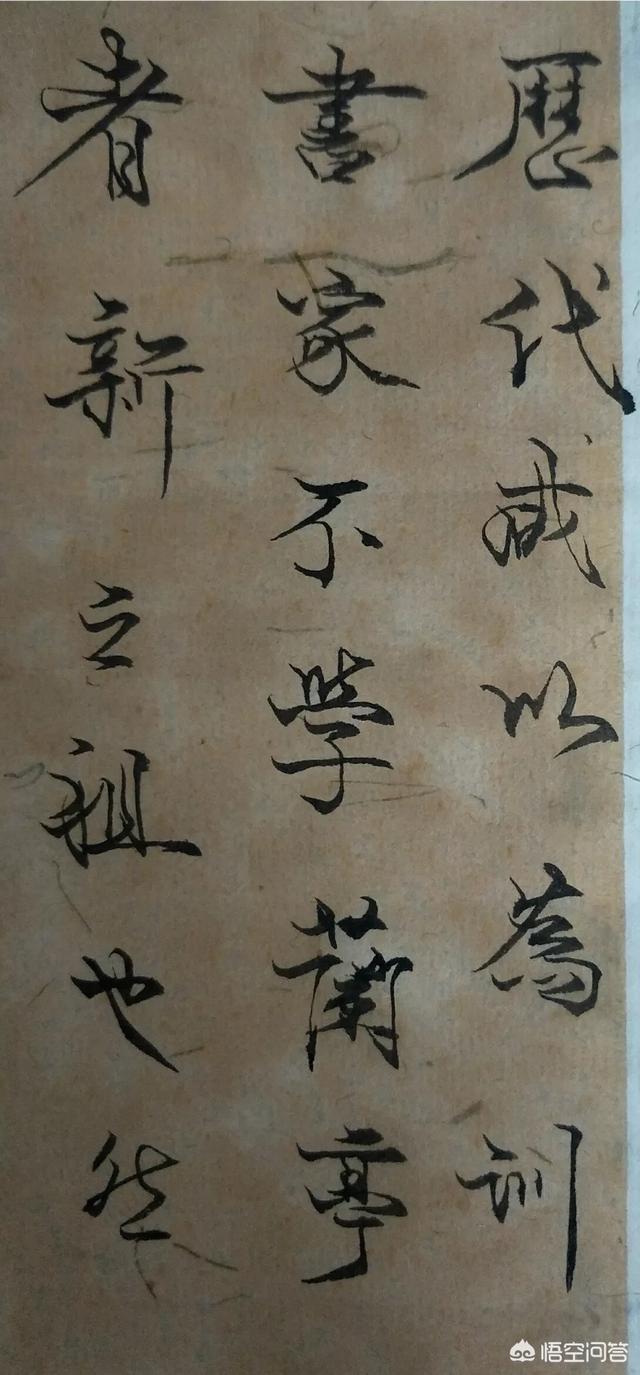 歷代咸以為訓
書家不學蘭亭
者新立祖也然
悟空问答